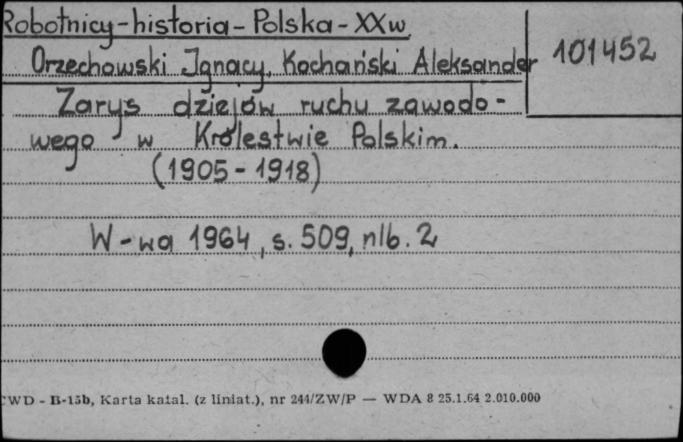 Robotnicy - historia - Polska - XXw
Orzechowski Ignacy, Kochański Aleksander
101452
Zarys dziejów ruchu zawodo-
wego w Królestwie Polskim.
(1905 - 1918)
W-wa 1964, s. 509, nlb. 2
CWD - B-15b, Karta katal. (z liniat.), nr 244/ZW/P — WDA 8 25.1.64 2.010.000